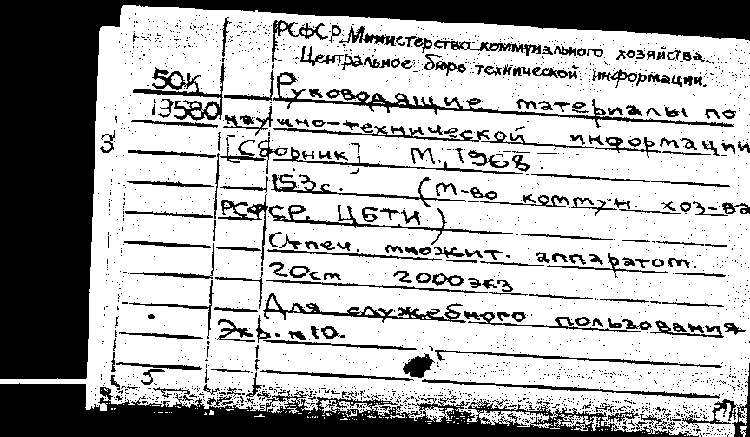 РСФСР. Министерство коммунального хозяйства.
Центральное бюро технической информации.
50К Руководящие материалы по
13580 научно-технической информации
[Сборник] М., 1968.
3
153 с. (М-во коммун. хоз-ва
РСФСР. ЦБТИ)
Отпеч. множит. аппаратом.
20 см 2000 экз
Для служебного пользования
Экз. №10.
5